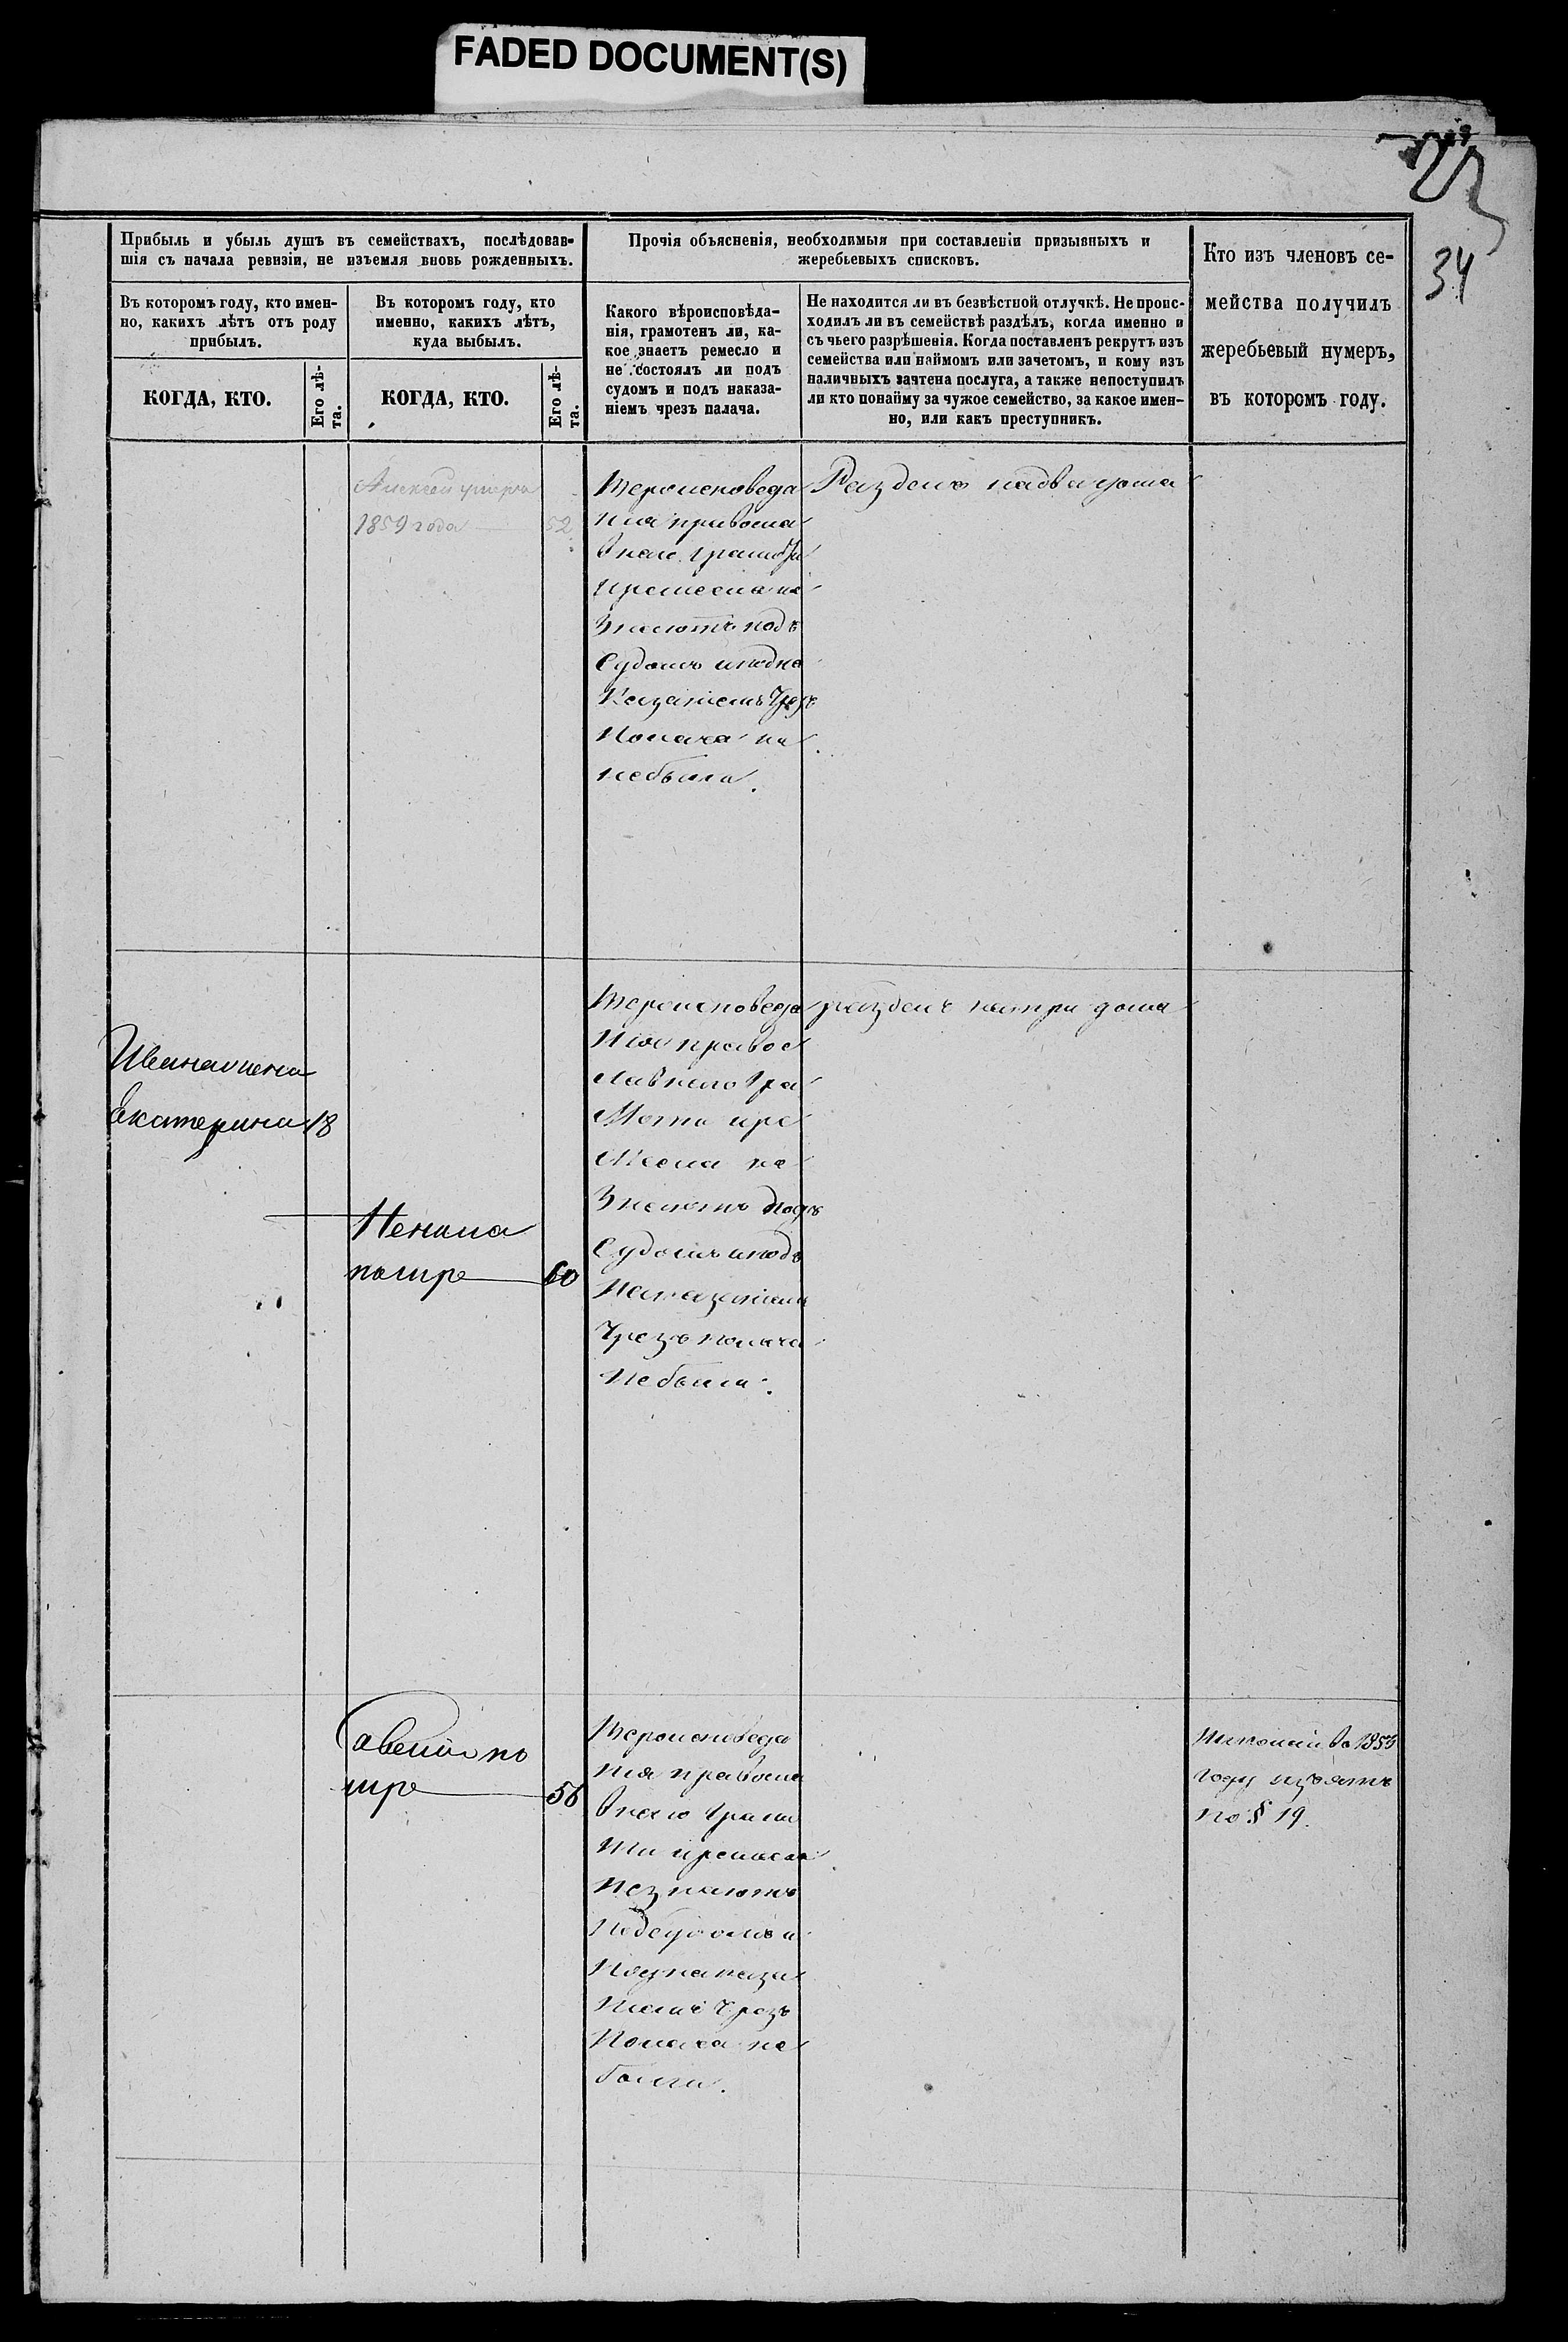 FADED DOCUMENT(S)
34
Прибыль и убыль душъ въ семействахъ, послѣдовав-
шія съ начала ревизіи, не изъемля вновь рожденныхъ.
Прочія объясненія, необходимыя при составленіи призывныхъ и
жеребьевыхъ списковъ.
Кто изъ членовъ се-
мейства получилъ
жеребьевый нумеръ,
въ которомъ году.
Въ которомъ году, кто имен-
но, какихъ лѣтъ отъ роду
прибылъ.
Въ которомъ году, кто
именно, какихъ лѣтъ,
куда выбылъ.
Какого вѣроисповѣда-
нія, грамотенъ ли, ка-
кое знаетъ ремесло и
не состоялъ ли подъ
судомъ и подъ наказа-
ніемъ чрезъ палача.
Не находится ли въ безвѣстной отлучкѣ. Не проис-
ходилъ ли въ семействѣ раздѣлъ, когда именно и
съ чьего разрѣшенія. Когда поставленъ рекрутъ изъ
семейства или наймомъ или зачетомъ, и кому изъ
наличныхъ зачтена послуга, а также непоступилъ
ли кто понайму за чужое семейство, за какое имен-
но, или какъ преступникъ.
КОГДА, КТО.
Его лѣ-
та.
КОГДА, КТО.
Его лѣ-
та.
Алексей умеръ
1859 года 52
Вероисповеда
ния правосла
внаго
ремесла не
Знаютъ подъ
Судомъ и подна
Казаниемъ Чрезъ
Полача
небыли.
Разделъ надва дома
Ивана жена
Екатерина 18
помре 60
Вероисповеда
Ния правос
лавнаго Гра
Моты и ре
Месла не
Знаютъ подъ
Судомъ и подъ
Наказанiемъ
Чрезъ полача
Небыли.
разделъ натри дома
Савелий по
мре 56
Вероисповеда
ния правосла
внаго Грамо
ты и ремесла
Незнаютъ
Подсудомъ и
Под наказа
нiемъ Чрезъ
Полача не
были.
1853
году изъятъ
по § 19.